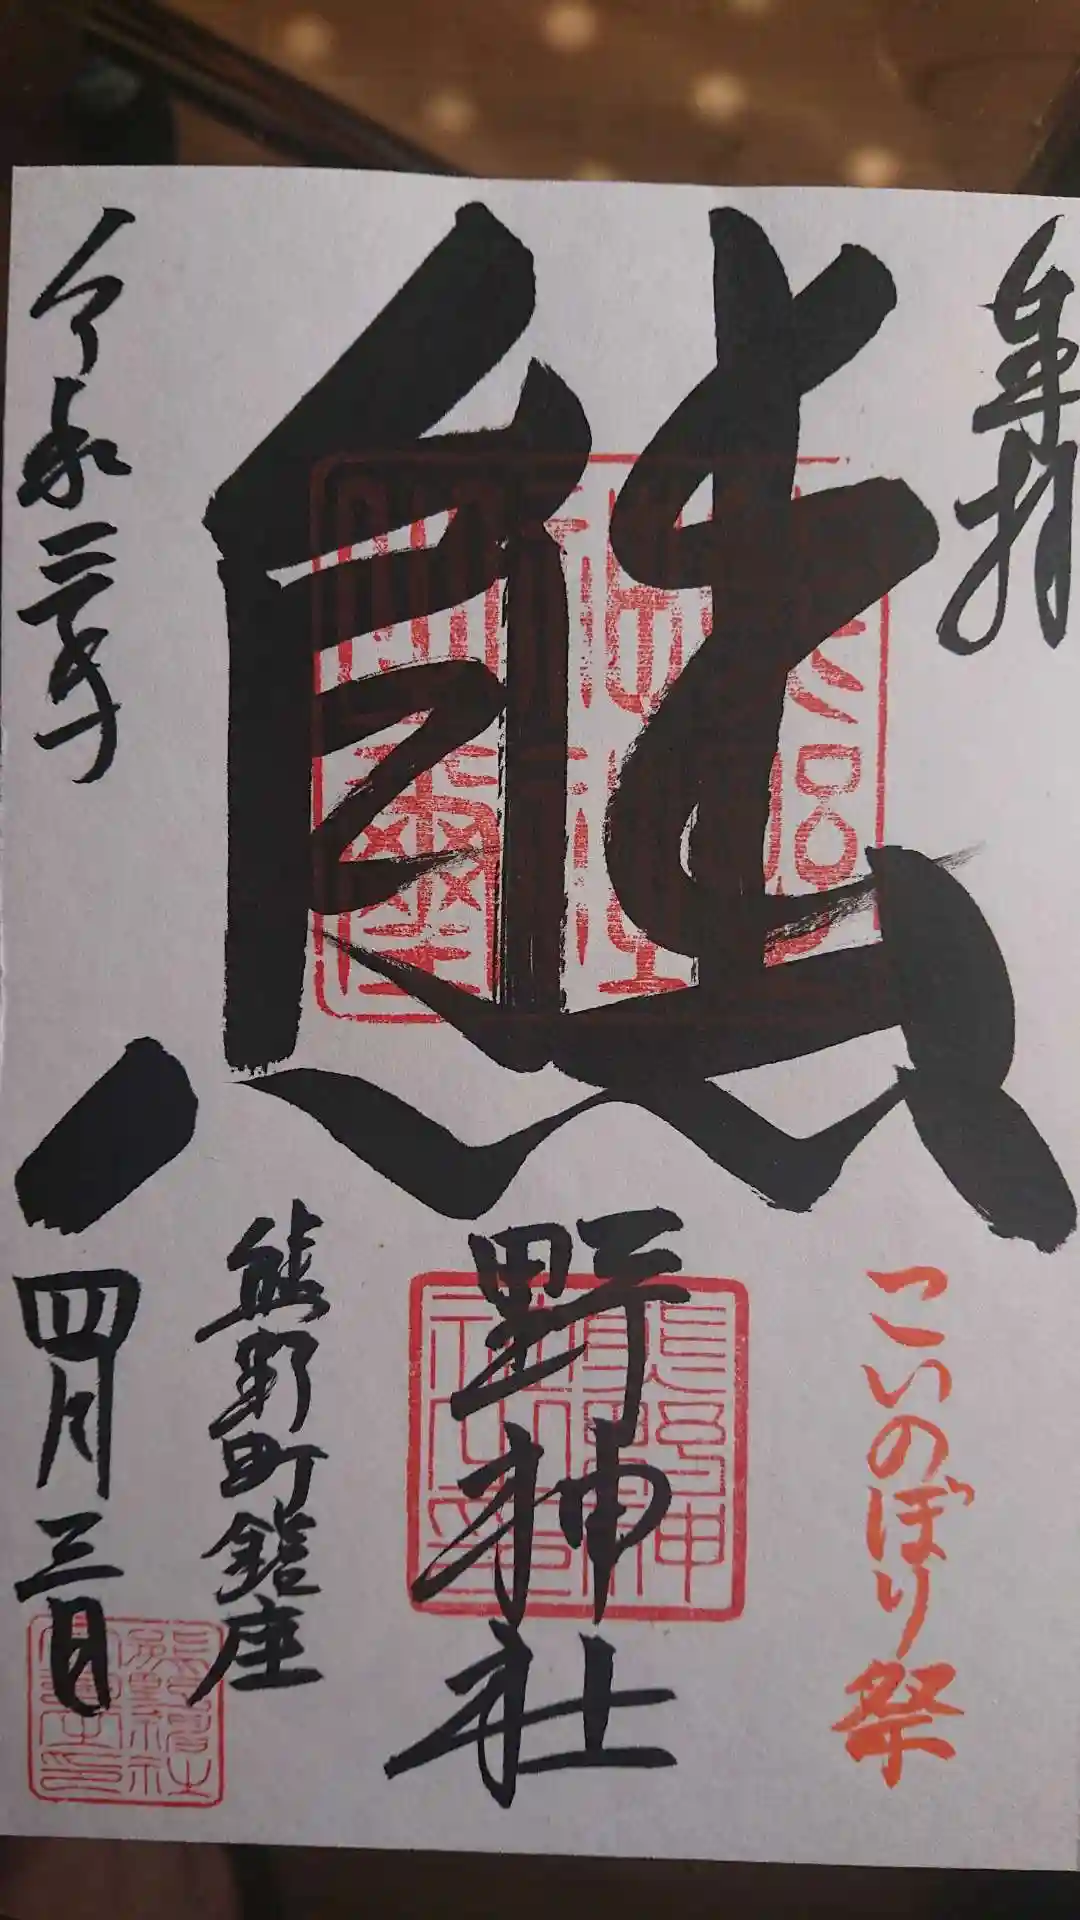 奉拝
こいのぼり祭
熊
野神社
熊野町鎮座
令和三年
四月三日